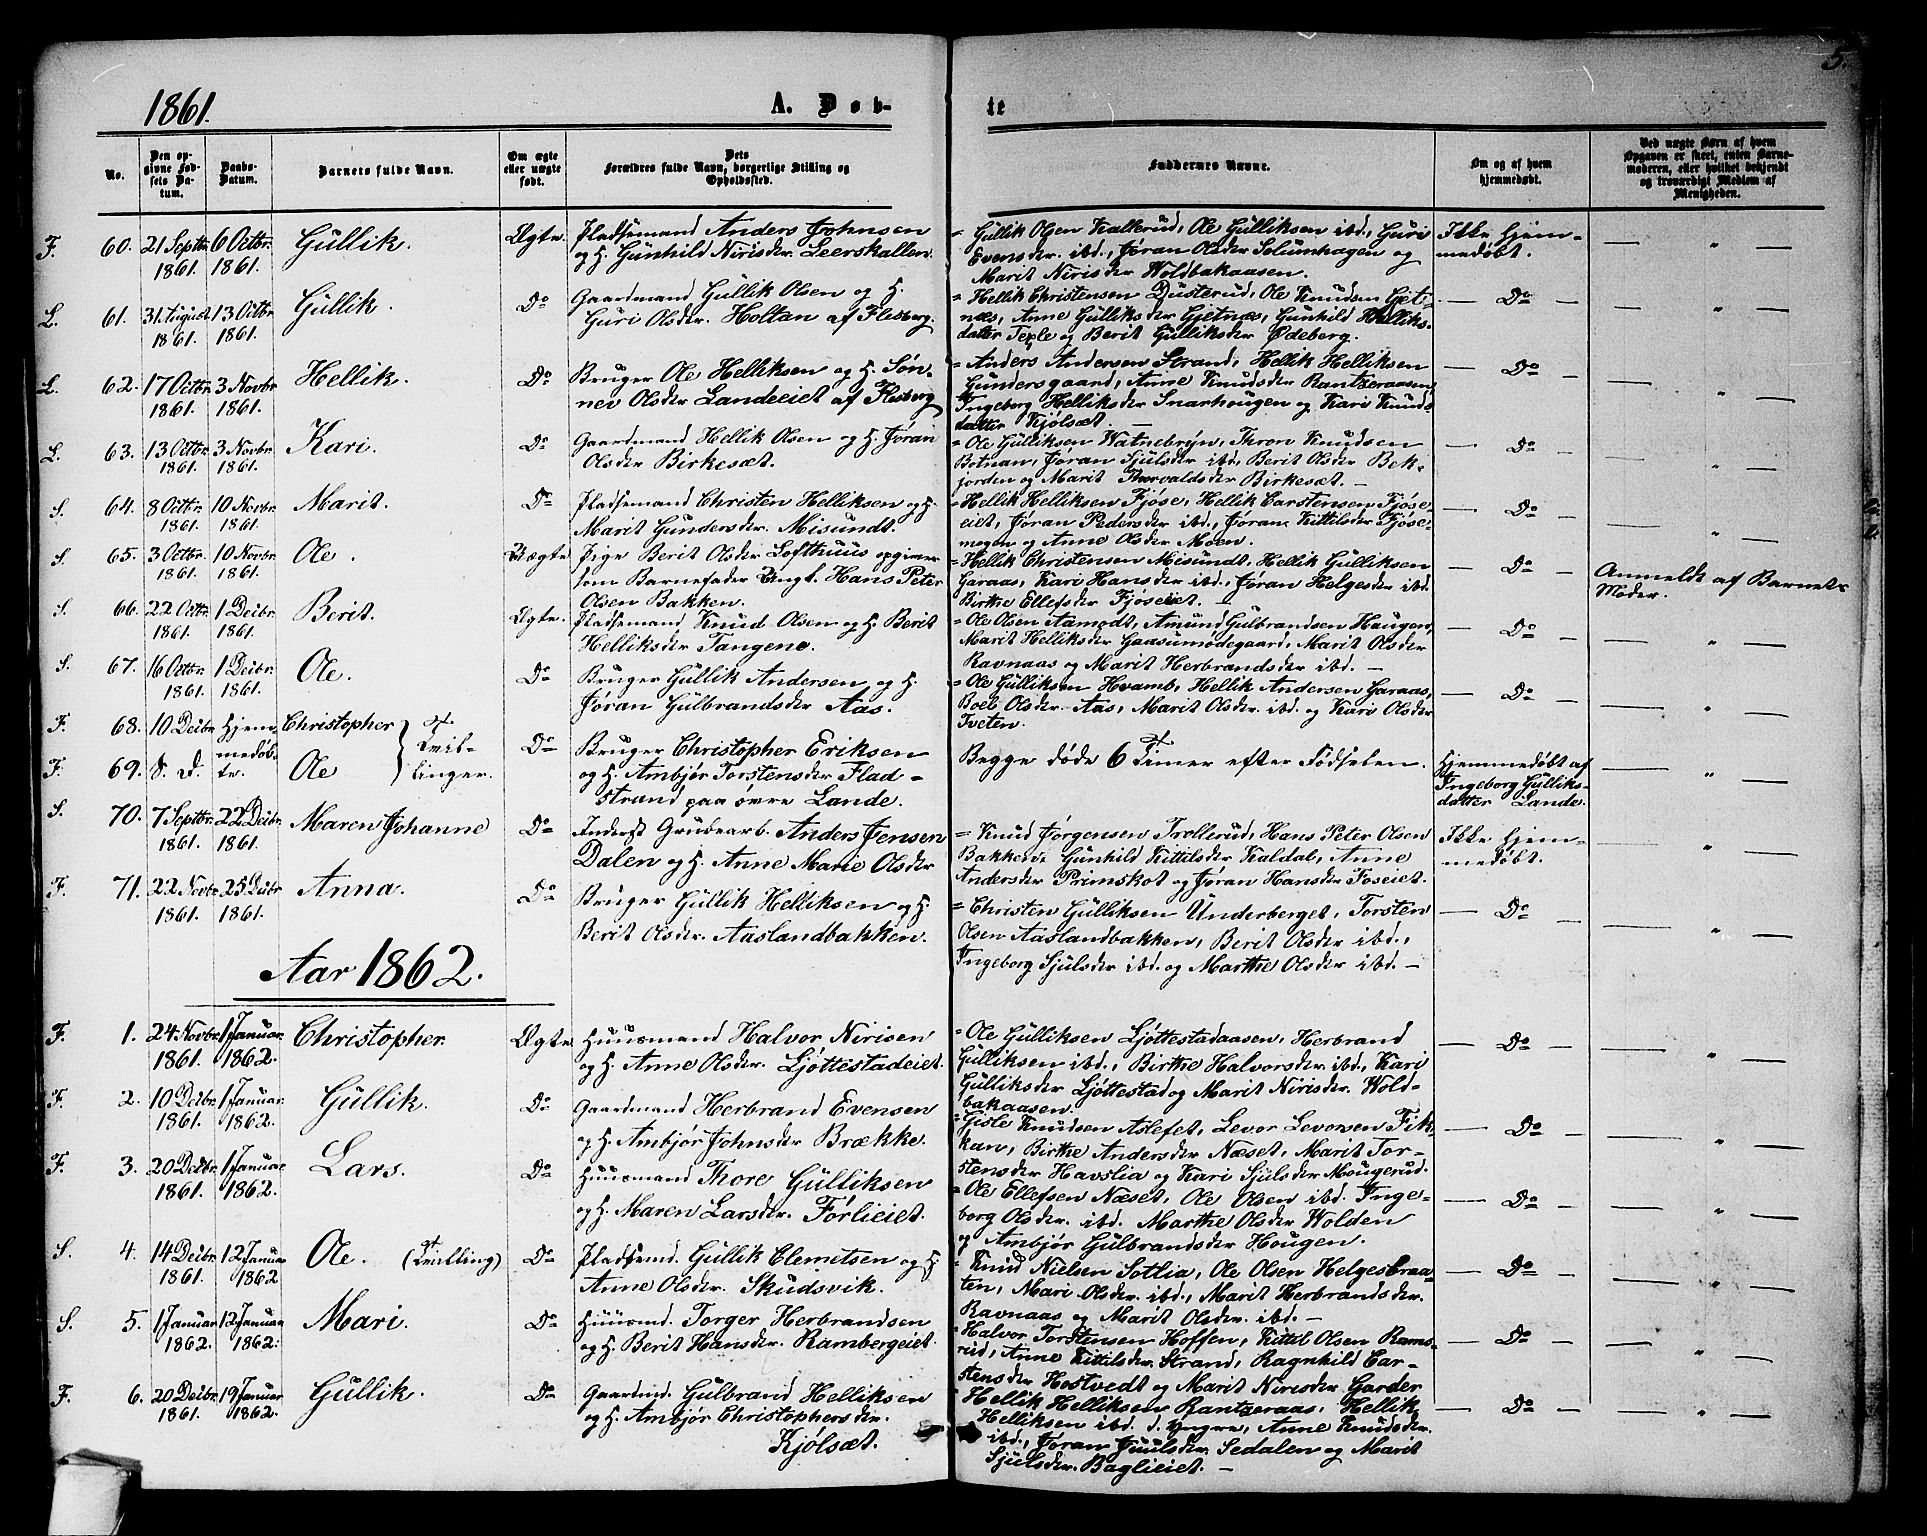 5.
1861. A. Døb- te
No. Den opgivne Fødsels Datum. Daabs-Datum. Barnets fulde Navn. Om ægte eller uægte født. Dets Forældres fulde Navn, borgerlige Stilling og Opholdssted. Faddernes Navne. Om og af hvem hjemmedøbt. Ved uægte Børn af hvem Opgaven er skeet, enten Barnemoderen, eller hvilket bekjendt og troværdigt Medlem af Menigheden.
F. 60. 21 Septbr. 1861. 6 Octbr. 1861. Gullik. Ægte. Pladsemand Anders Johnsen
og H. Gunhild Nirisder. Leerskallen.
= Gullik Olsen Kallerud, Ole Gulliksen ibd., Guri
Evensder. ibd., Jøran Olsder Solumhagen og
Marit Nirisder Woldbakaasen.
Ikke hjem-
medøbt. — " —
L. 61. 31 August 1861. 13 Octbr. 1861. Gullik. Do Gaardmand Gullik Olsen og H.
Guri Olsder. Holtan af Flesberg.
= Hellik Christensen Dusterud, Ole Knudsen Gjet-
næs, Anne Gulliksder Gjetnæs, Gunhild Helliks-
datter Texle og Berit Gulliksder Ødeberg.
— Do — — " —
L. 62. 17 Octbr. 1861. 3 Novbr. 1861. Hellik. Do Bruger Ole Helliksen og H. Søn-
nev Olsder Landeeiet af Flesberg
= Anders Andersen Strand, Hellik Helliksen
Gundersgaard, Anne Knudsder Rantzeraasen,
Ingeborg Helliksder Snarhougen og Kari Knuds-
datter Kjølsæt. —
— Do — — " —
L. 63. 13 Octbr. 1861. 3 Novbr. 1861. Kari. Do Gaardmand Hellik Olsen og H. Jøran
Olsder Birkesæt.
= Ole Gulliksen Watnebryn, Thron Knudsen
Botnan, Jøran Sjulsder ibd, Berit Olsder Bek-
jorden og Marit Thorvaldsder Birkesæt. —
— Do — — " —
S. 64. 8 Octbr. 1861. 10 Novbr. 1861. Marit. Do Pladsemand Christen Helliksen og H.
Marit Gundersder. Misundt.
= Hellik Helliksen Fjøse, Hellik Carstensen Fjøse-
eiet, Jøran Pedersder ibd., Jøran Kittilsder Fjøse-
mogen og Anne Olsder Moen.
— Do — — " —
S. 65. 3 Octbr. 1861. 10 Novbr. 1861. Ole. Uægte. Pige Berit Olsder Lofthuus opgiver
som Barnefader Ungk. Hans Peter
Olsen Bakken.
= Hellik Christensen Misundt, Hellik Gulliksen
Garaas, Kari Hansder ibd., Jøran Helgesder ibd.
Birthe Ellefsder Fjøseiet. —
— Do — Anmeldt af Barnets
Moder.
S. 66. 22 Octbr. 1861. 1 Decbr. 1861. Berit. Ægte. Pladsemand Knud Olsen og H. Berit
Helliksder Tangene.
= Ole Olsen Aamodt, Amund Gulbrandsen Haugen,
Marit Helliksder Gaasumødegaard, Marit Olsder
Ravnaas og Marit Herbrandsder ibd. —
— Do — — " —
S. 67. 16 Octbr. 1861. 1 Decbr. 1861. Ole. Do Bruger Gullik Andersen og H.
Jøran Gulbrandsder Aas.
= Ole Gulliksen Hvamb, Hellik Andersen Garaas,
Boel Olsder. Aas, Marit Olsder ibd. og Kari Olsder
Tveten.
— Do — — " —
F. 68. 10 Decbr. Hjem- Christopher } T
F. 69. s. D. medøb-
te. Ole Tvil-
linger. Do Bruger Christopher Eriksen
og H. Ambjør Torstensder Flad-
strand paa øvre Lande.
Begge døde 6 Timer efter Fødselen. Hjemmedøbt af
Ingeborg Gulliks-
datter Lande. — " —
S. 70. 7 Septbr. 1861. 22 Decbr. 1861. Maren Johanne Do Inderst Grubearb. Anders Jensen
Dalen og H. Anne Marie Olsder
= Knud Jørgensen Trollerud, Hans Peter Olsen
Bakken, Gunhild Kittilsder Kaldal, Anne
Andersder Primskot og Jøran Hansder Foseiet.
Ikke hjem-
medøbt. — " —
F. 71. 22 Novbr. 1861. 25 Decbr. 1861. Anna. Do Bruger Gullik Helliksen og H.
Berit Olsder. Aaslandbakken.
= Christen Gulliksen Underberget, Torsten
Olsen Aaslandbakken, Berit Olsder ibd.,
Ingeborg Sjulsder ibd. og Marthe Olsder ibd. —
— Do — — " —
Aar 1862.
F. 1. 24 Novbr. 1861. 1 Januar. 1862. Christopher. Ægte. Huusmand Halvor Nirisen
og H. Anne Olsder. Ljøttestadeiet.
= Ole Gulliksen Ljøttestadaasen, Herbrand
Gulliksen ibd., Birthe Halvorsder ibd., Kari
Gulliksder Ljøttestad og Marit Nirisder. Wold-
bakaasen.
— Do — — " —
F. 2. 10 Decbr. 1861. 1 Januar. 1862. Gullik. Do Gaardmand Herbrand Evensen
og H. Ambjør Johnsder Brække.
= Gisle Knudsen Aslefet, Levor Levorsen Fik-
kan, Birthe Andersder Næset, Marit Tor-
stensder Havslia og Kari Sjulsder Mougerud.
— Do — — " —
F. 3. 20 Decbr. 1861. 1 Januar. 1862. Lars. Do Huusmand Thore Gulliksen
og H. Maren Larsder. Førlieiet.
= Ole Ellefsen Næset, Ole Olsen ibd. Inge-
borg Olsder. ibd. Marthe Olsder Wolden
og Ambjør Gulbrandsder Hougen.
— Do — — " —
S. 4. 14 Decbr. 1861. 12 Januar 1862 Ole. (Tvilling) Do Pladsemd. Gullik Clemitsen og H.
Anne Olsder. Skudsvik.
= Knud Nielsen Sotlia, Ole Olsen Helgesbraa-
ten, Mari Olsder. ibd., Marit Herbrandsder.
Ravnaas og Marit Olsder. ibd. —
— Do — — " —
S. 5. 1 Januar 1862. 12 Januar 1862. Mari. Do Huusmd. Torger Herbrandsen
og H. Berit Hansder. Rambergeiet.
= Halvor Torstensen Hoffen, Kittil Olsen Rams-
rud, Anne Kittilsder. Strand, Ragnhild Car-
stensder Hostvedt og Marit Nirisder. Garder
— Do — — " —
F. 6. 20 Decbr. 1861. 19 Januar 1862. Gullik. Do Gaardmd. Gulbrand Helliksen
og H. Ambjør Christophersder.
Kjølsæt.
= Hellik Helliksen Rantzeraas, Hellik
Helliksen ibd. d. yngre, Anne Knudsder.
ibd., Jøran Juulsder. Sedalen og Marit
Sjulsder. Baglieiet. —
— Do — — " —